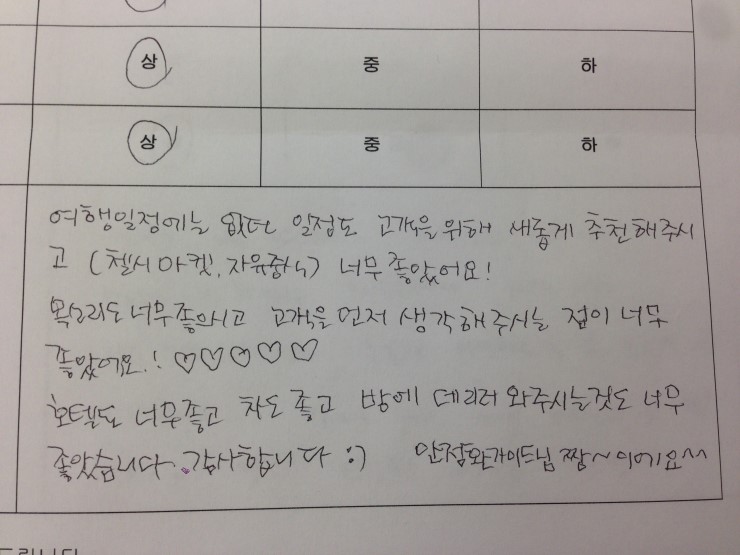 상 중 하
상 중 하
여행일정에는 없던 일정도 고객을 위해 새롭게 추천해주시
고 (첼시마켓, 자유중식) 너무 좋았어요!
목소리도 너무좋으시고 고객을 먼저 생각해주시는 점이 너무
좋았어요.! ♡♡♡♡♡
호텔도 너무좋고 차도 좋고 밤에 데리러 와주시는것도 너무
좋았습니다. 감사합니다 :) 가이드님 짱~이에요^^
드립니다